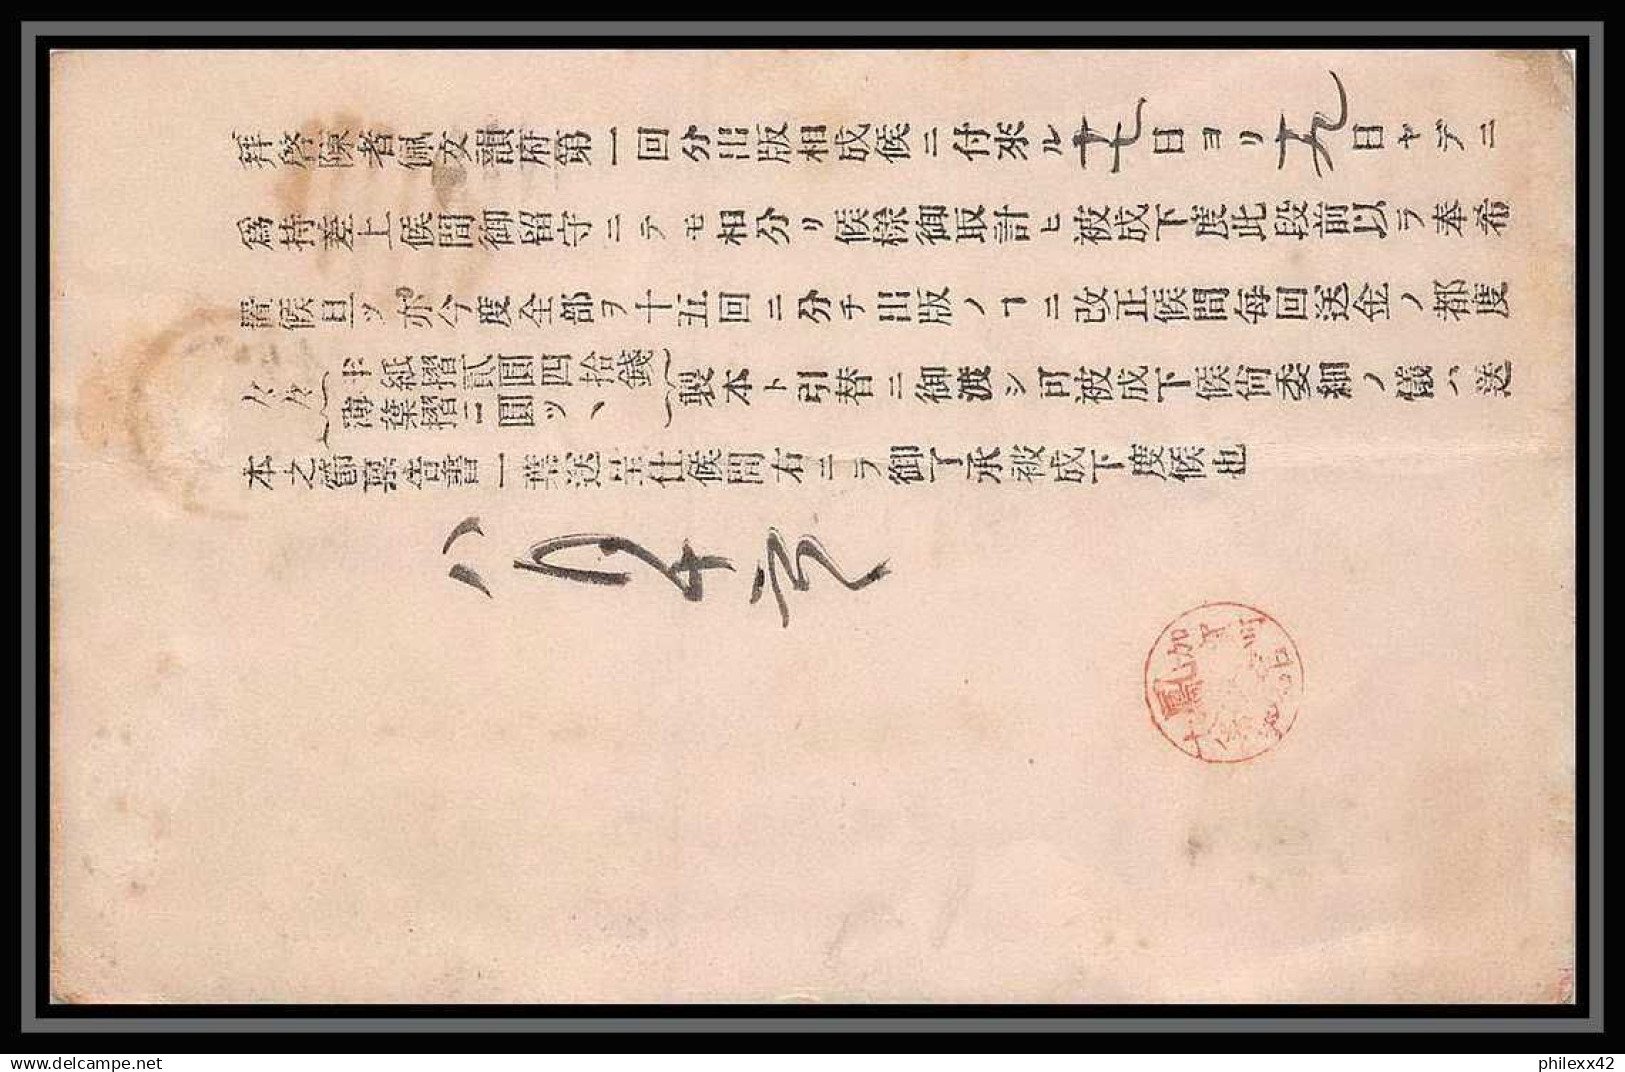 拜啓陳者佩文韻府第一回分出版相成候ニ付來ル十七日ヨリ十九日マデニ
爲持差上候間御留守ニテモ相分リ候樣御取計ヒ被成下度此段前以テ奉希
置候且ツ亦今度全部ヲ十五回ニ分チ出版ノヿニ改正候間每回送金ノ都度
唐紙摺貳圓四拾錢
薄葉摺二圓ツヽ
製本ト引替ニ御渡シ可被成下候尙委細ノ儀ハ送
本之節稟告書一葉送呈仕候間右ニテ御了承被成下度候也
八月十
鳳
philexx42